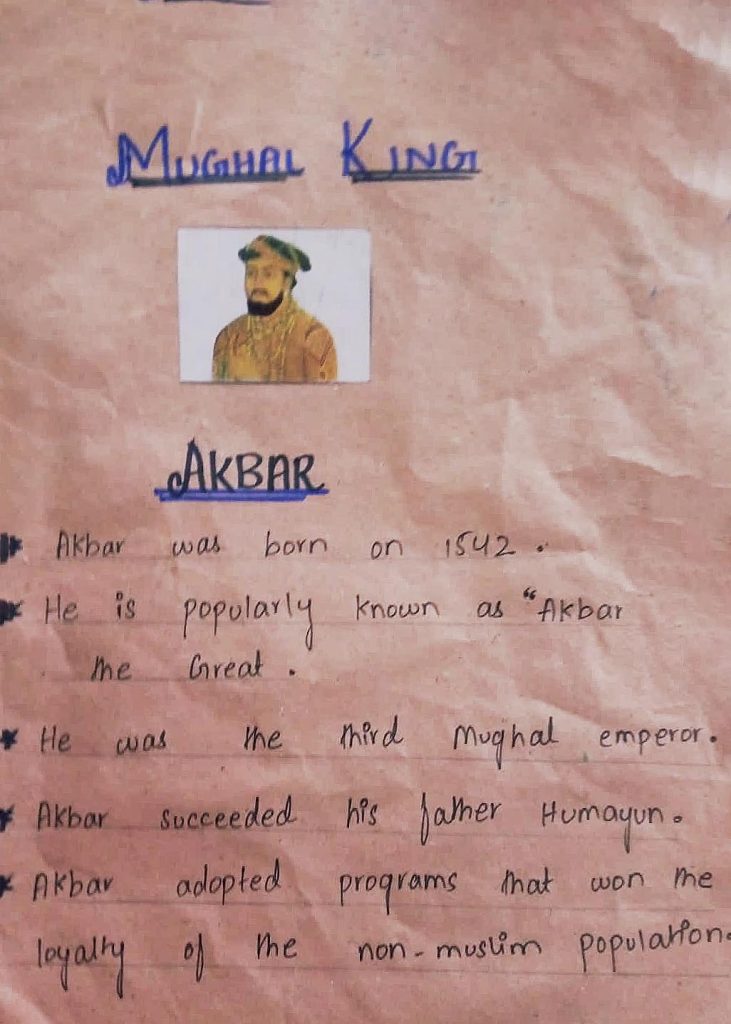 MUGHAL KING
AKBAR
Akbar was born on 1542.
He is popularly known as "Akbar
the Great.
He was the third Mughal emperor.
Akbar succeeded his father Humayun.
Akbar adopted programs that won the
loyalty of the non-muslim population.